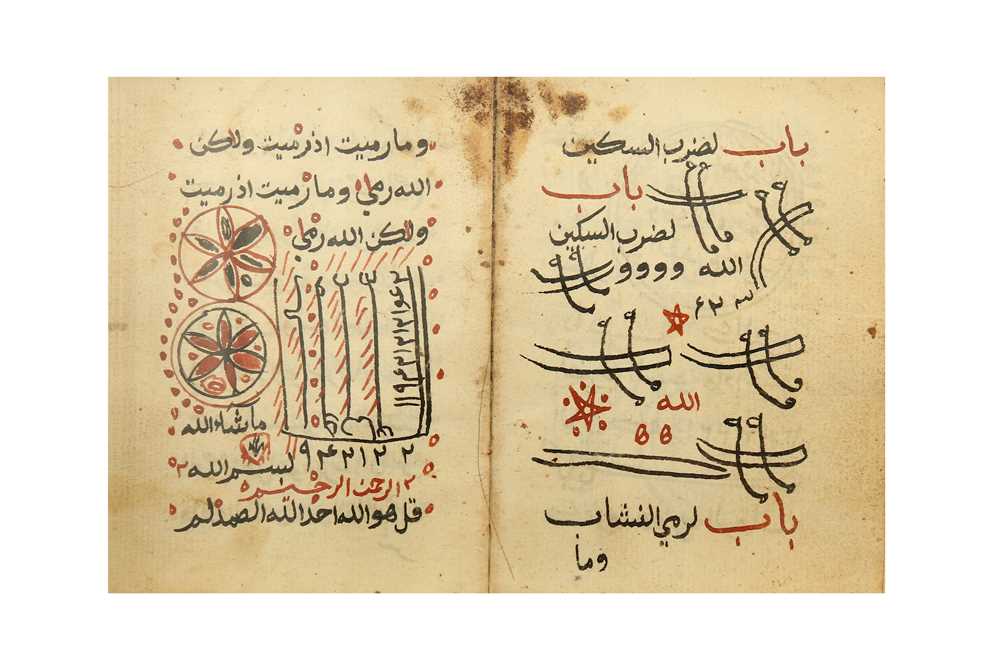 باب لضرب السكين
باب
لضرب السكين
الله وووو
الله
باب لرمي النشاب
وما
وما رميت اذ رميت ولكن
الله رمى وما رميت اذ رميت
ولكن الله رمى
ما شاء الله
بسم الله
الرحمن الرحيم
قل هو الله احد الله الصمد لم